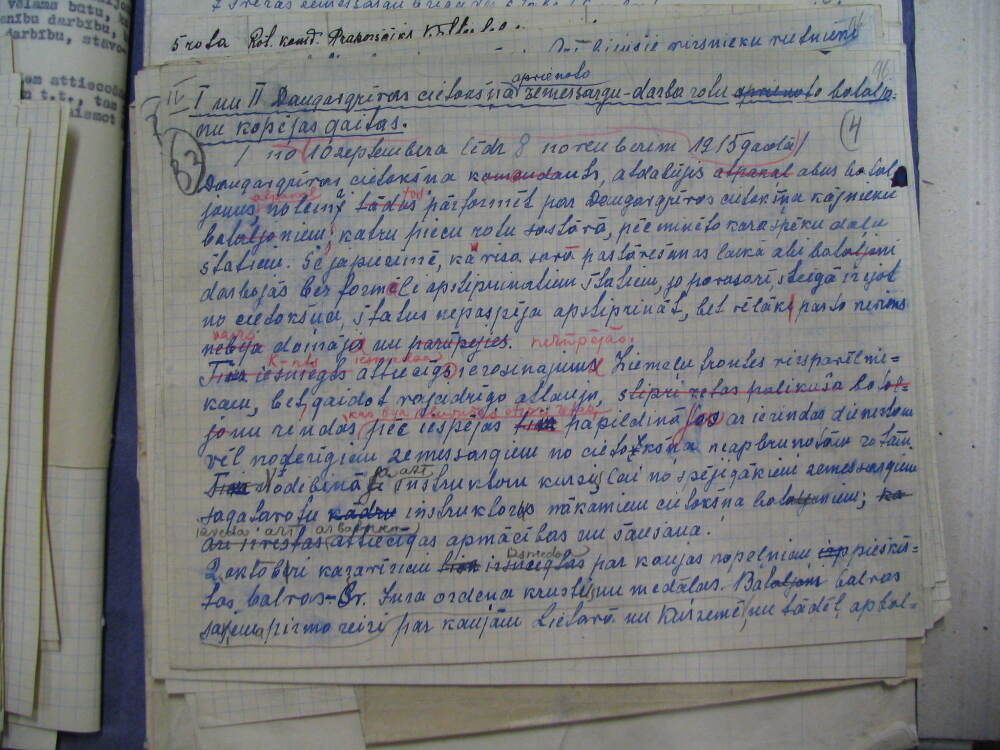 velams batu, ka
darbību,
darbību, stāvo-
attiecoša
t.t., tas
5 rota Rot. kom.
virsnieku
96
IV I un II Daugavgrīvas cietokšņa apvienoto zemessargu-darba rotu bataljo-
nu kopējās gaitas.
33 (4)
/ no 10 septembra līdz 8 novembrim 1915 gadā /
Daugavgrīvas cietokšņa komandants, atdabūjis atpakaļ abus batal-
jonus, nolemj tādus pārformēt par Daugavgrīvas cietokšņa kājnieku
bataljoniem, katru piecu rotu sastāvā, pēc minēto karaspēku daļu
štatiem. Še jāpiezīmē, ka visa savā pastāvēšanas laikā abi bataljoni
darbojās bez formēli apstiprinātiem štatiem, jo pavasarī, steigā izejot
no cietokšņa, štatus nepaspēja apstiprināt, bet vēlāk par to neviens
nebija domājis un parūpējies. nerūpējās.
K-nts iesniedza attiecīgo ierosinājumu Ziemeļu frontes virspavēlnie-
kam, bet, gaidot vajadzīgo atļauju, stipri retas palikuša batal-
jonu rindas, pēc iespējas papildināja ar ierindas dienestam
vēl noderīgiem zemessargiem no cietokšņa neapbruņotām rotām
Nodibināja arī instruktoru kursi, lai no spējīgākiem zemessargiem
sagatavotu kadru instruktorus nākamiem cietokšņa bataljoniem; ka
arī attiecīgas apmācības un šaušana.
2 oktobrī karavīriem izsniedza par kaujas nopelniem piešķir-
tas balvas - Sv. Jura ordeņa krusti, un medaļas. Bataljoni balvas
saņema pirmo reizi par kaujām Lietavā un Kurzemē, un tādēļ apbal-